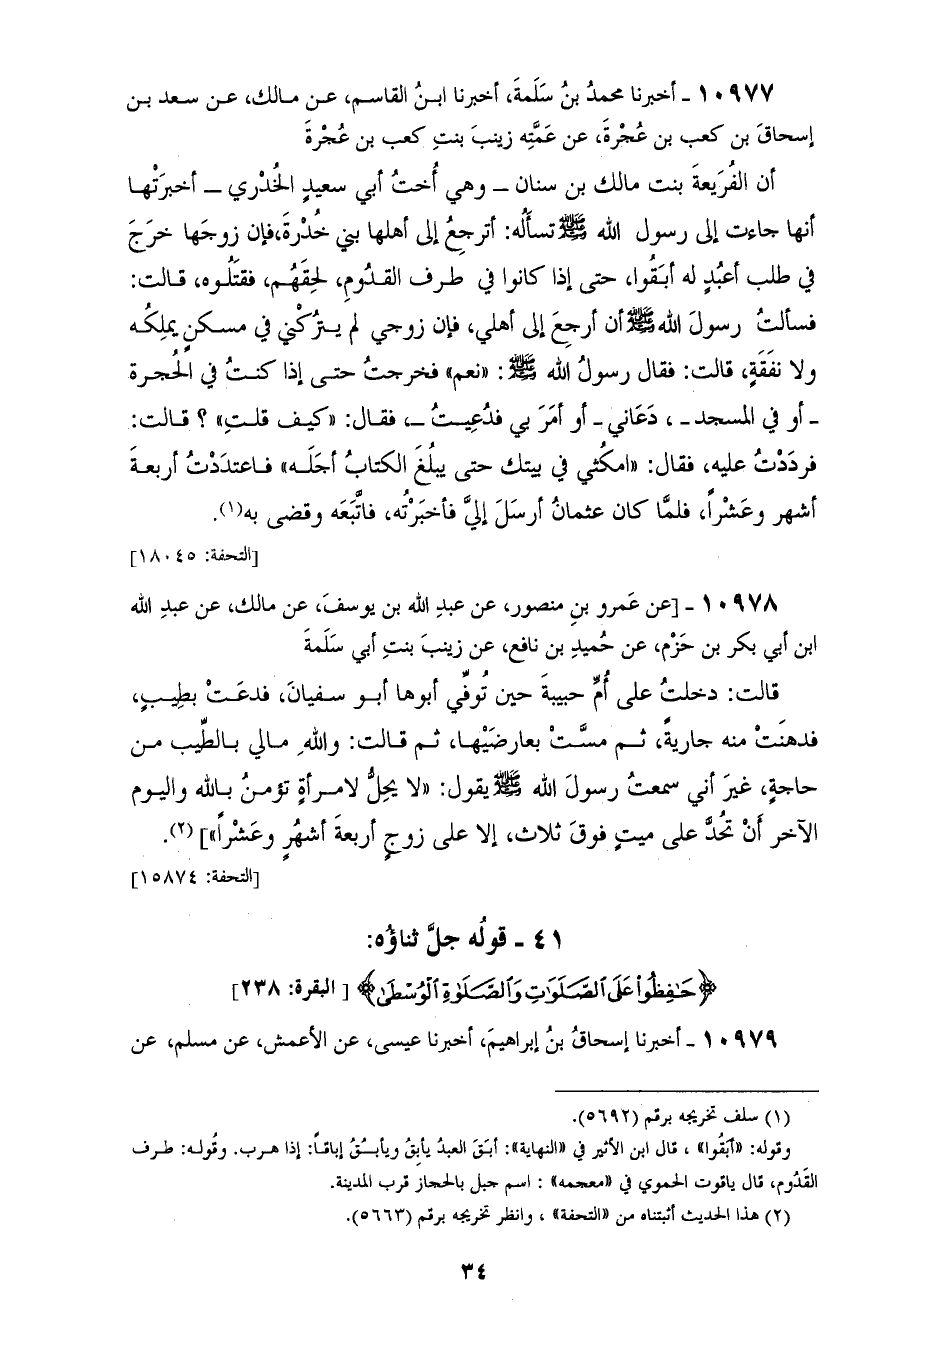 ١٠٩٧٧ ـ أخبرنا محمدُ بنُ سَلَمةَ، أخبرنا ابنُ القاسم، عن مالك، عن سعد بن
إسحاقَ بن كعب بن عُجْرةَ، عن عَمَّتِه زينبَ بنتِ كعب بن عُجْرةَ
أن الفُرَيعةَ بنت مالك بن سنان ـ وهي أُختُ أبي سعيدٍ الخُدْري ـ أخبرَتْها
أنها جاءت إلى رسول الله ﷺ تسألُه: أترجعُ إلى أهلها بني خُدْرةَ،فإن زوجَها خرَجَ
في طلب أعبُدٍ له أبَقُوا، حتى إذا كانوا في طرف القدُومِ، لحِقَهُم، فقتَلُوه، قالت:
فسألتُ رسولَ الله ﷺ أن أرجعَ إلى أهلي، فإن زوجي لم يترُكْني في مسكنٍ يملِكُه
ولا نفَقَةٍ، قالت: فقال رسولُ الله ﷺ: «نعم» فخرجتُ حتى إذا كنتُ في الحُجرة
ـ أو في المسجد ـ ، دَعَاني ـ أو أمَرَ بي فدُعِيتُ ـ، فقال: «كيف قلتِ» ؟ قالت:
فردَدْتُ عليه، فقال: «امكُثي في بيتك حتى يبلُغَ الكتابُ أجَلَه» فاعتدَدْتُ أربعةَ
أشهر وعَشْراً، فلمَّا كان عثمانُ أرسَلَ إليَّ فأخبَرْتُه، فاتَّبَعَه وقضى به(١).
[التحفة: ١٨٠٤٥]
١٠٩٧٨ ـ [عن عَمرو بنِ منصور، عن عبدِ الله بن يوسفَ، عن مالك، عن عبدِ الله
ابن أبي بكر بن حَزْم، عن حُميدِ بن نافع، عن زينبَ بنتِ أبي سَلَمةَ
قالت: دخلتُ على أُمِّ حبيبةَ حين تُوفِّي أبوها أبو سفيانَ، فدعَتْ بطِيبٍ،
فدهنَتْ منه جاريةً، ثم مسَّتْ بعارضَيْها، ثم قالت: واللهِ مالي بالطِّيب من
حاجةٍ، غيرَ أني سمعتُ رسولَ الله ﷺ يقول: «لا يحِلُّ لامرأةٍ تؤمنُ بالله واليوم
الآخر أَنْ تحُدَّ على ميتٍ فوقَ ثلاث، إلا على زوجٍ أربعةَ أشهُرٍ وعَشْراً»] (٢).
[التحفة: ١٥٨٧٤]
٤١ ـ قولُه جلَّ ثناؤُه:
﴿حَٰفِظُواْ عَلَى ٱلصَّلَوَٰتِ وَٱلصَّلَوٰةِ ٱلْوُسْطَىٰ﴾ [ البقرة: ٢٣٨]
١٠٩٧٩ ـ أخبرنا إسحاقُ بنُ إبراهيمَ، أخبرنا عيسى، عن الأعمش، عن مسلم، عن
(١) سلف تخريجه برقم (٥٦٩٢).
وقوله: «أبَقُوا» ، قال ابن الأثير في «النهاية»: أبَقَ العبدُ يأبِقُ ويأبُقُ إباقاً: إذا هرب. وقُوله: طرف
القَدُوم، قال ياقوت الحموي في «معجمه» : اسم جبل بالحجاز قرب المدينة.
(٢) هذا الحديث أثبتناه من «التحفة» ، وانظر تخريجه برقم (٥٦٦٣).
٣٤